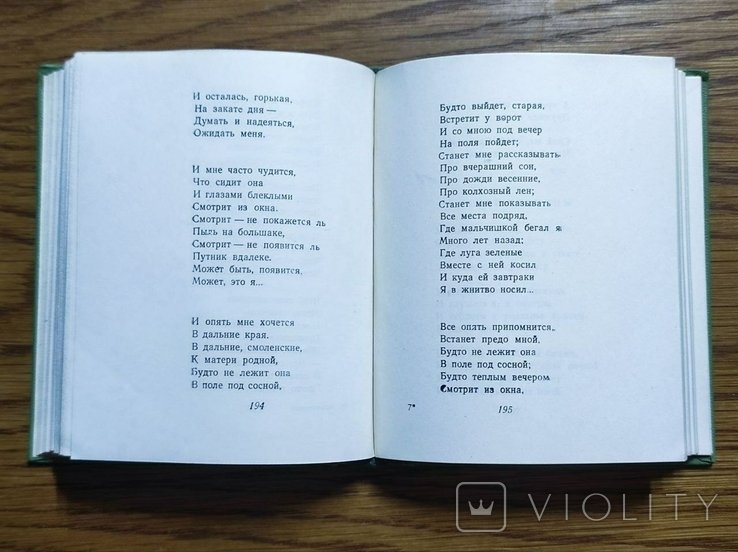 И осталась, горькая,
На закате дня —
Думать и надеяться,
Ожидать меня.
И мне часто чудится,
Что сидит она
И глазами блеклыми
Смотрит из окна.
Смотрит — не покажется ль
Пыль на большаке,
Смотрит — не появится ль
Путник вдалеке.
Может быть, появится.
Может, это я...
И опять мне хочется
В дальние края.
В дальние, смоленские,
К матери родной,
Будто не лежит она
В поле под сосной,
194
Будто выйдет, старая,
Встретит у ворот
И со мною под вечер
На поля пойдет;
Станет мне рассказывать
Про вчерашний сон,
Про дожди весенние,
Про колхозный лен;
Станет мне показывать
Все места подряд,
Где мальчишкой бегал я
Много лет назад;
Где луга зеленые
Вместе с ней косил
И куда ей завтраки
Я в жнитво носил...
Все опять припомнится,
Встанет предо мной.
Будто не лежит она
В поле под сосной;
Будто теплым вечером
Смотрит из окна,
7*
195
VIOLITY